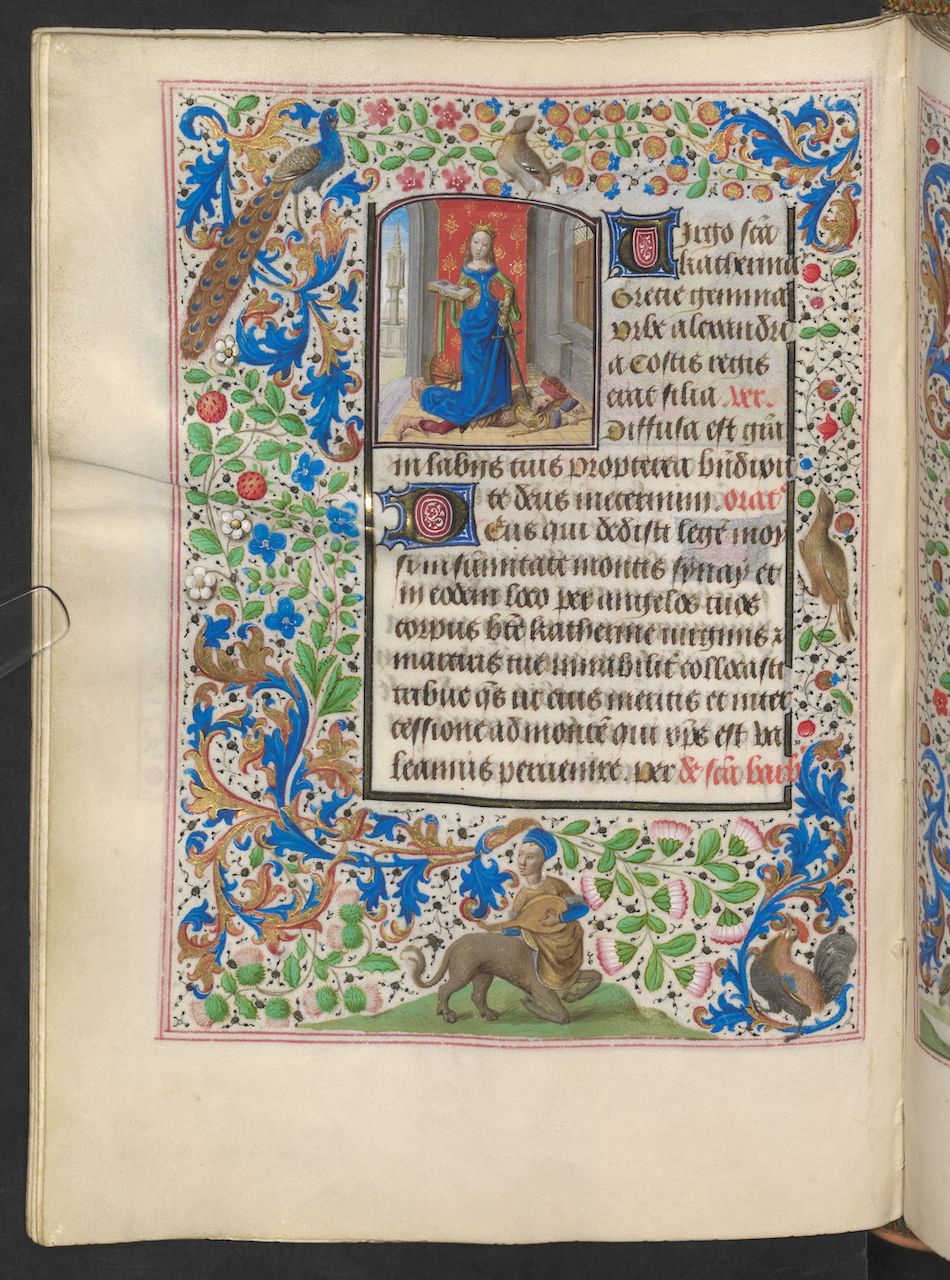 Virgo scā
katherina
Grecie gemma
vrbe alexandri
a Costis regis
erat filia. ver.
Diffusa est grā
in labijs tuis propterea bn̄dixit
te deus in eternum. orat
Deus qui dedisti legē moy
si in summitate montis synay et
in eodem loco per angelos tuos
corpus btē katherine virginis z
martiris tue mirabilit̄ collocasti
tribue q̄s ut eius meritis et inter
cessione ad montē qui xp̄s est va
leamus peruenire. Per de scā barb